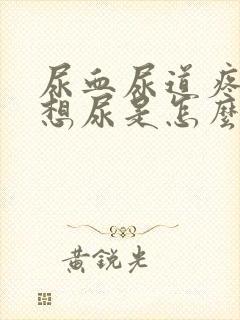 尿血尿道疼
想尿是怎麼
黄銳光